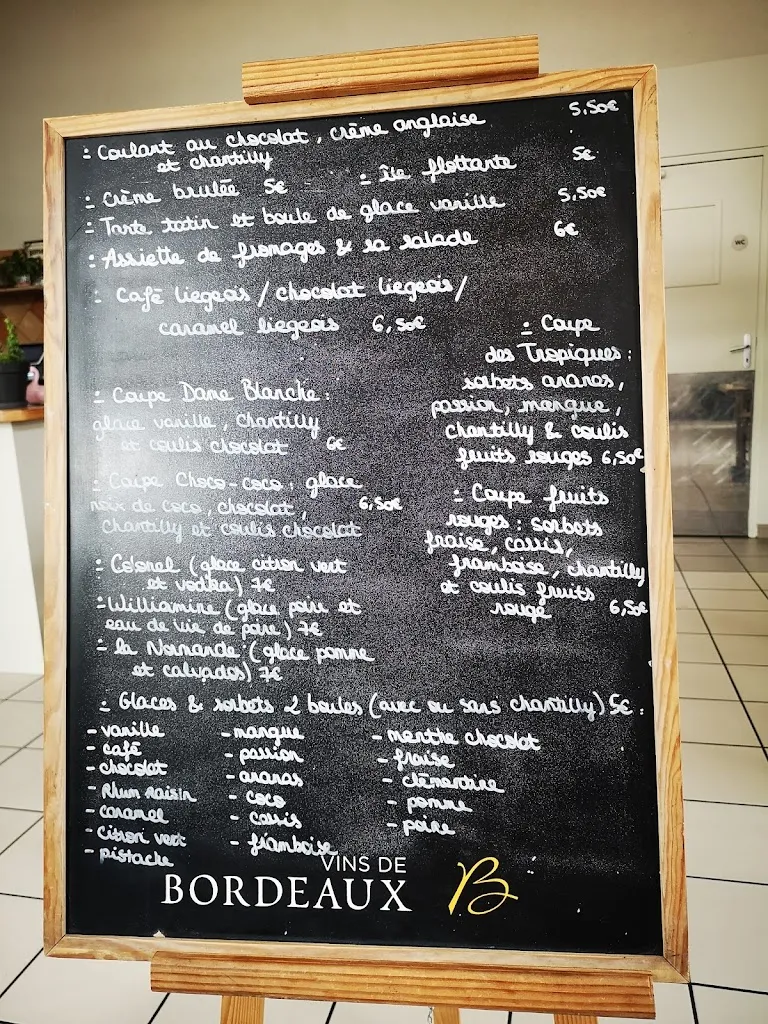 - Coulant au chocolat, crème anglaise 5,50€
et chantilly
- Crème brulée 5€ - île flottante 5€
- Tarte tatin et boule de glace vanille 5,50€
- Assiette de fromages & sa salade 6€
- Café liegeois / chocolat liegeois /
caramel liegeois 6,50€
- Coupe Dame Blanche :
glace vanille, chantilly
et coulis chocolat 6€
- Coupe Choco-coco : glace
noix de coco, chocolat, 6,50€
chantilly et coulis chocolat
- Coupe
des Tropiques :
sorbets ananas,
passion, mangue,
chantilly & coulis
fruits rouges 6,50€
- Coupe fruits
rouges : sorbets
fraise, cassis,
framboise, chantilly
et coulis fruits
rouge 6,50€
- Colonel (glace citron vert
et vodka) 7€
- Williamine (glace poire et
eau de vie de poire) 7€
- la Normande (glace pomme
et calvados) 7€
- Glaces & sorbets 2 boules (avec ou sans chantilly) 5€ :
- vanille
- café
- chocolat
- Rhum raisin
- caramel
- citron vert
- pistache
- mangue
- passion
- ananas
- coco
- cassis
- framboise
- menthe chocolat
- fraise
- clémentine
- pomme
- poire
VINS DE
BORDEAUX B
WC